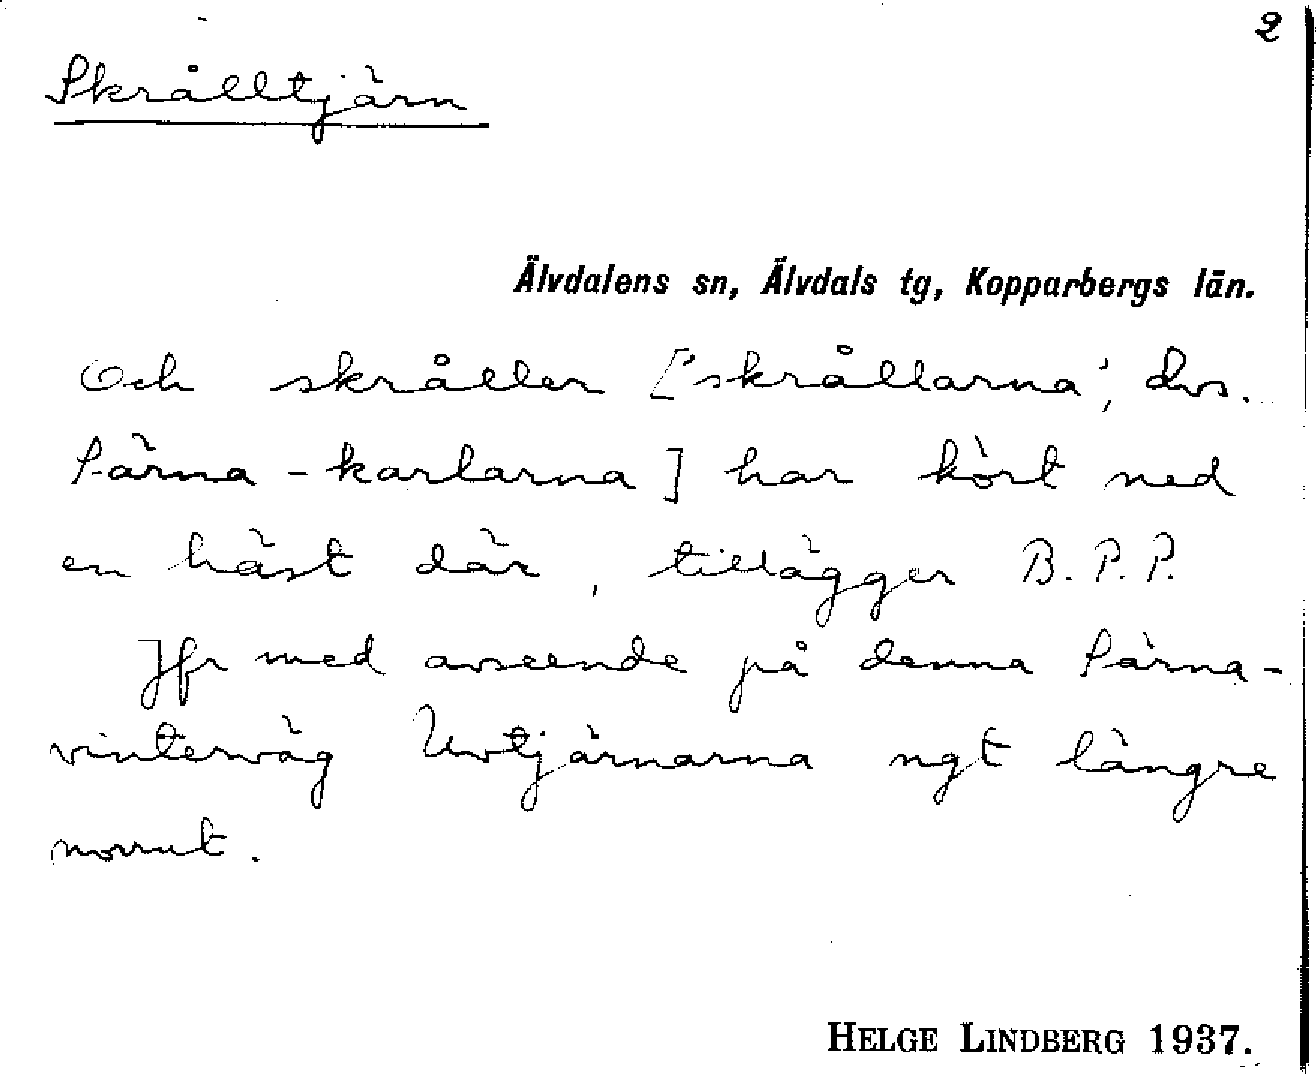 2
Skrålltjärn
Älvdalens sn, Älvdals tg, Kopparbergs län.
Och skråller ['skrållarna', dvs.
Särna-karlarna] har kört ned
en häst där, tillägger B.P.P.
Jfr med avseende på denna Särna-
vinterväg Uvtjärnarna ngt längre
norrut.
HELGE LINDBERG 1937.